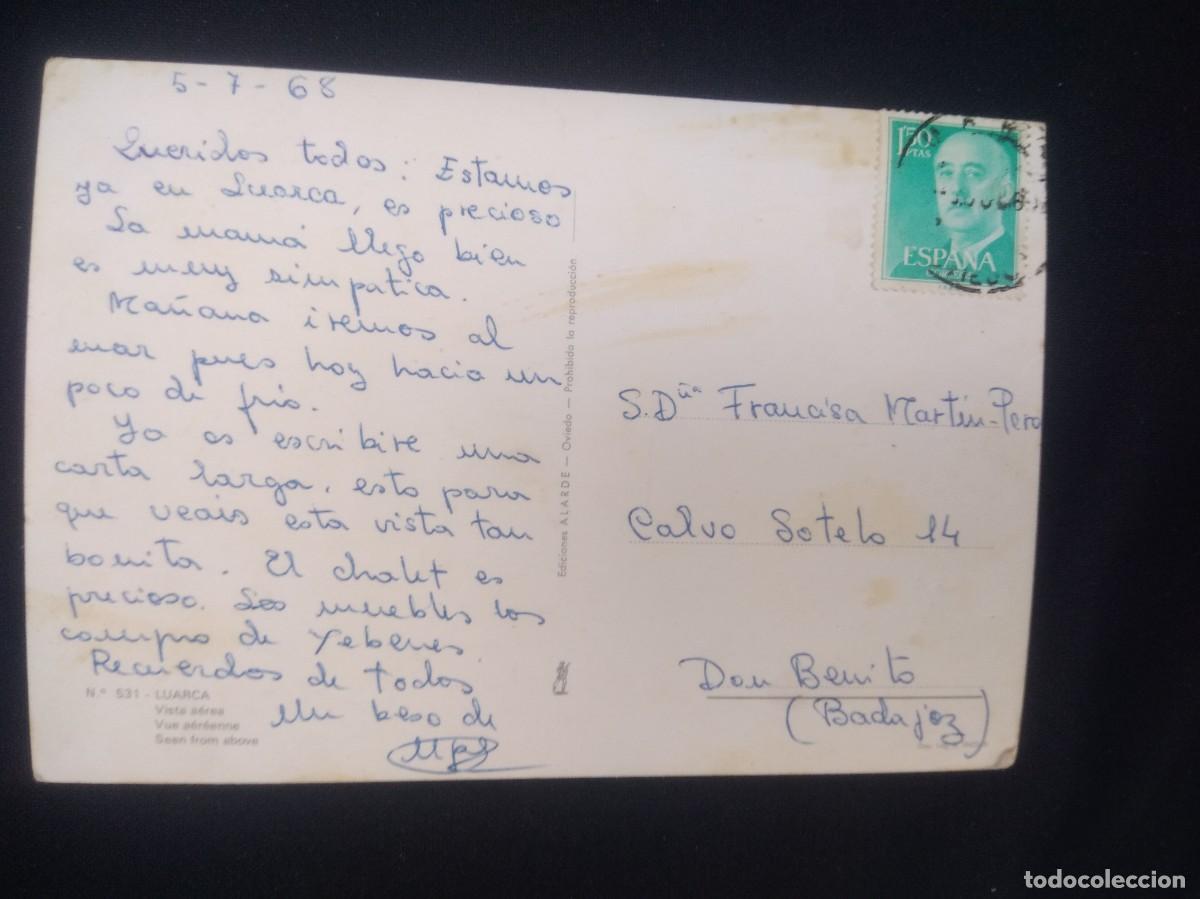 5-7-68
Queridos todos: Estamos
ya en Luarca, es precioso
La mamá llego bien
es muy simpatica.
Mañana iremos al
mar pues hoy hacia un
poco de frio.
Ya os escribire una
carta larga, esto para
que veais esta vista tan
bonita. El chalet es
precioso. Los muebles los
compro de Yebenes.
Recuerdos de todos
Un beso de
N.º 531 - LUARCA
Vista aérea
Vue aéréenne
Seen from above
Ediciones ALARDE — Oviedo — Prohibida la reproducción
1'50
PTAS
ESPAÑA
S. Dña Francisa Martín-Pero
Calvo Sotelo 14
Don Benito
(Badajoz)
todocoleccion